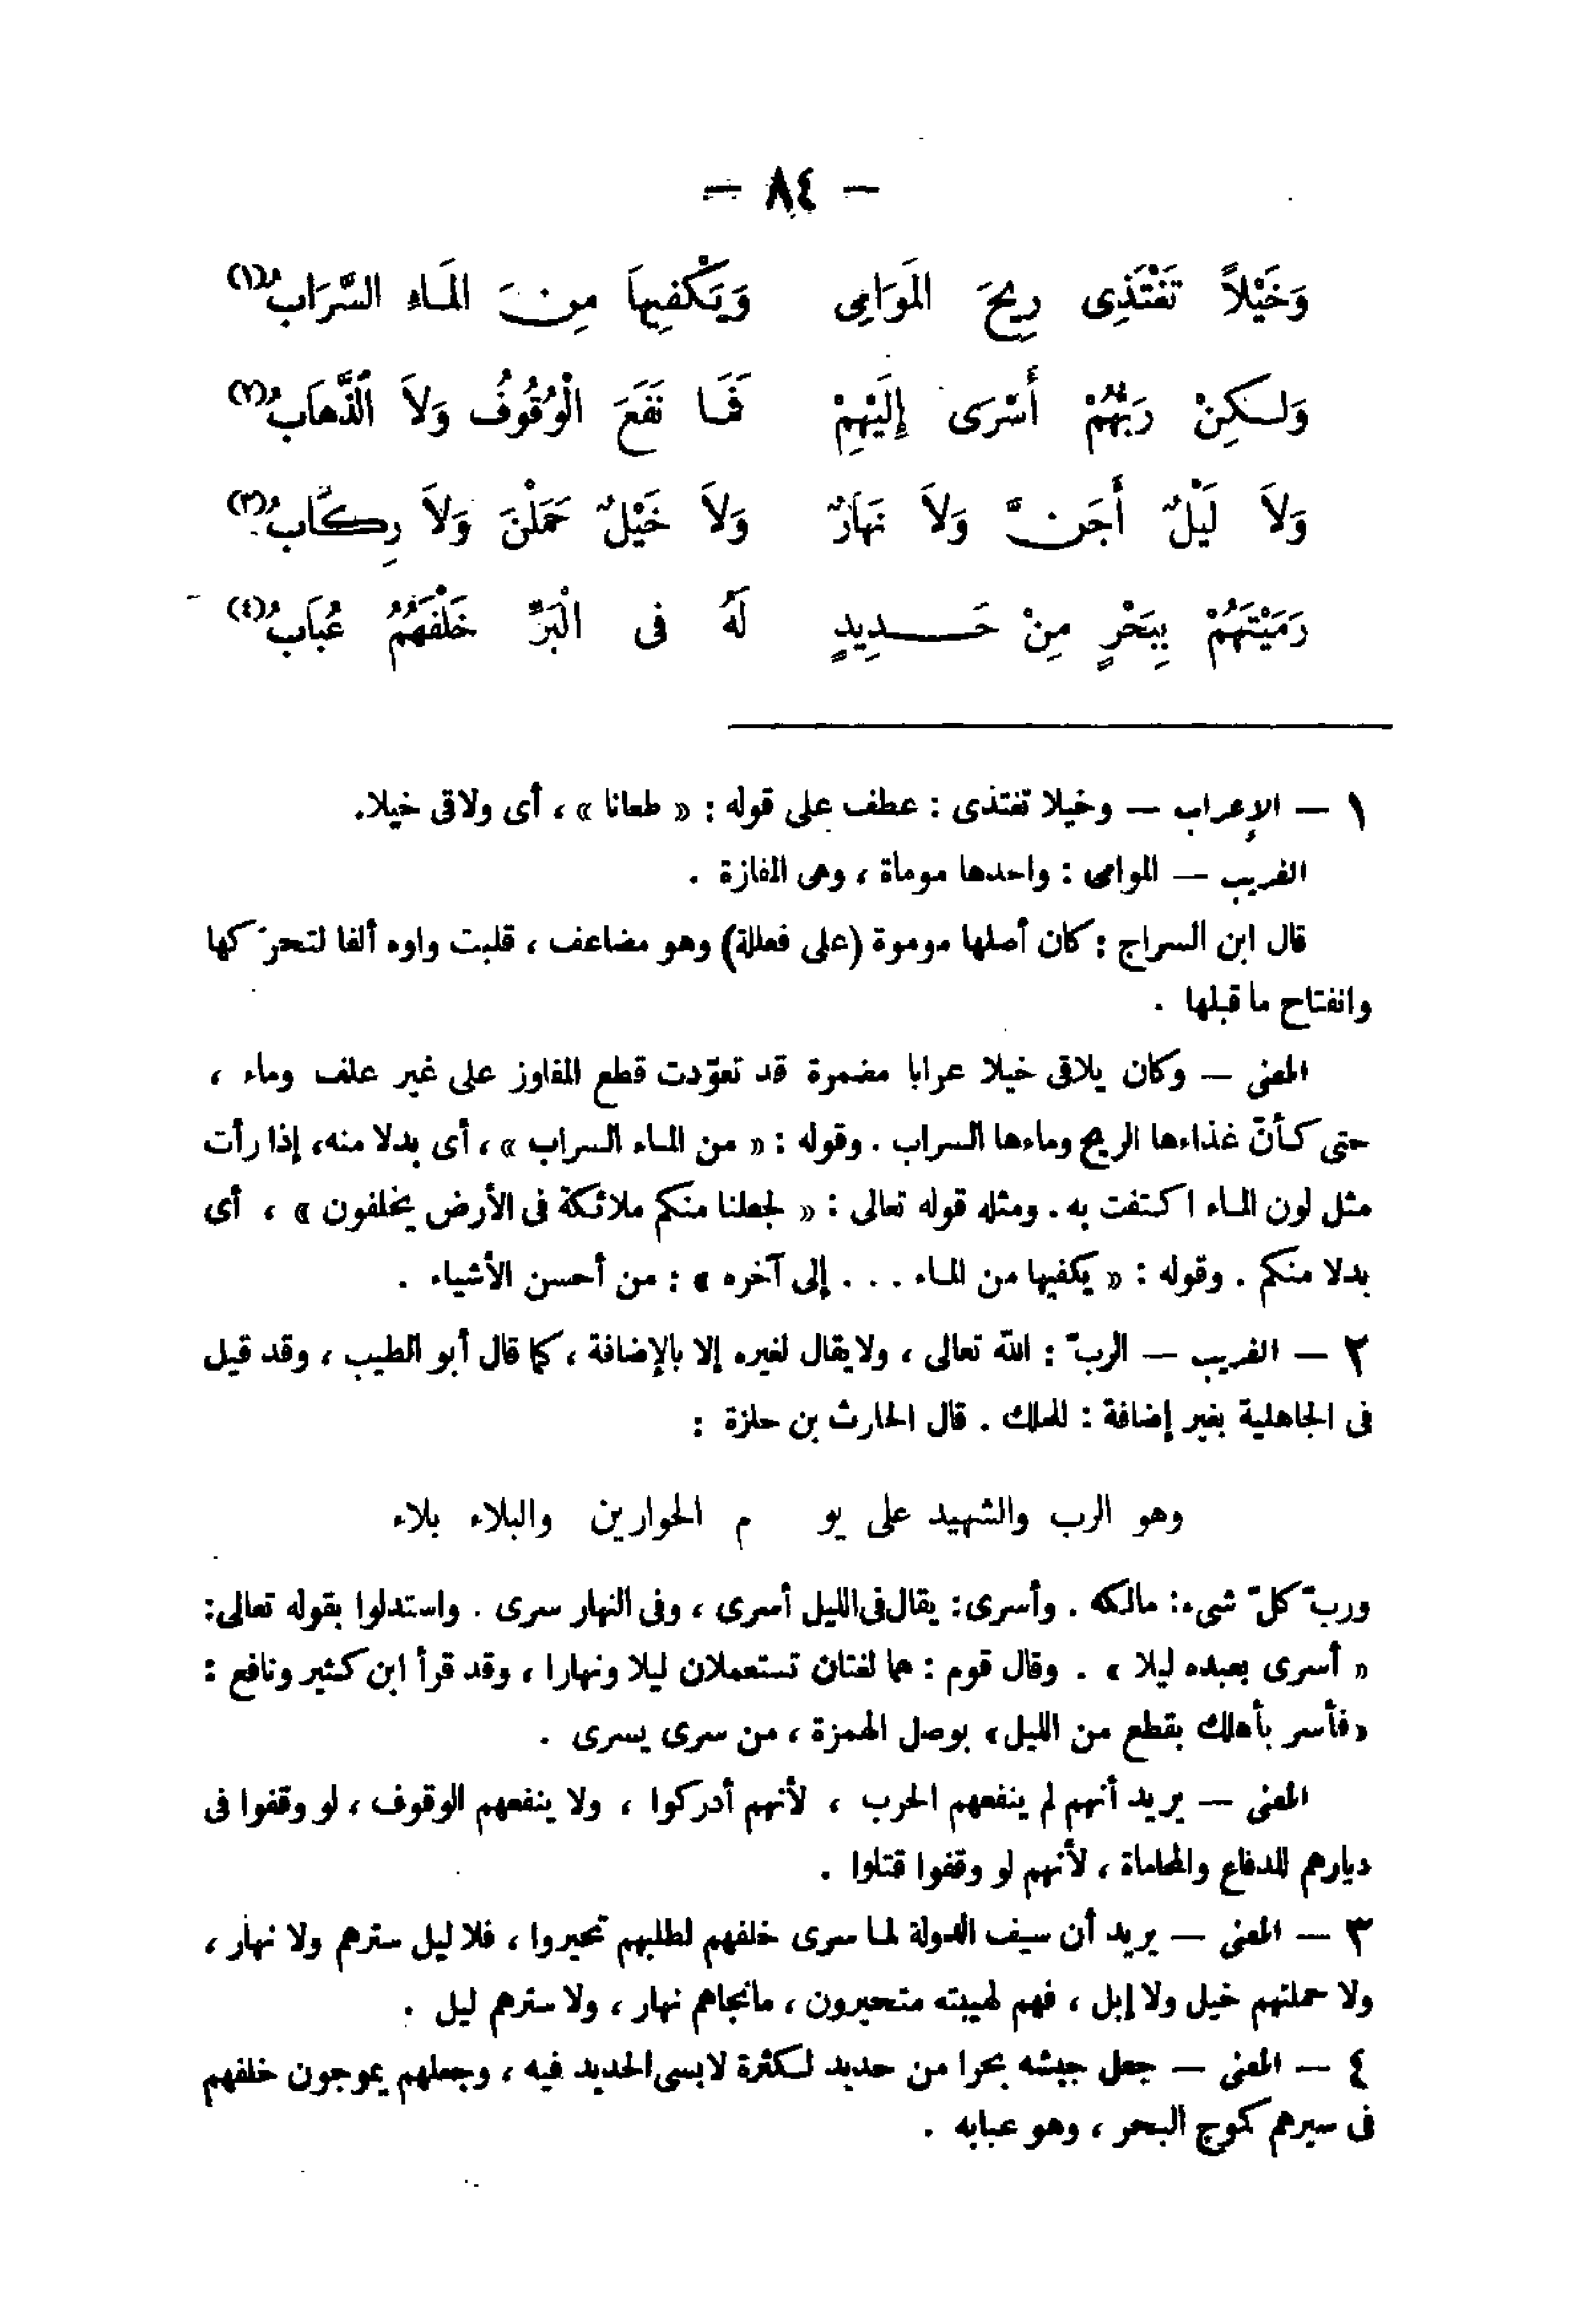 — ٨٤ —
وَخَيْلاً تَغْتَذِى رِيحَ المَوَامِى وَيَكْفِيهاَ مِنَ المَـاءِ السَّرَابُ(١)
وَلـكِنْ رَبُّهُمْ أَسْرَى إِلَيْهِمْ فَمَـا نَفَعَ الْوُقُوفُ وَلاَ الذَّهاَبُ(٢)
وَلاَ لَيْلٌ أَجَنَّ وَلاَ نَهَارٌ وَلاَ خَيْلٌ حَمَلْنَ وَلاَ رِكاَبُ(٣)
رَمَيْتَهُمُ بِبَحْرٍ مِنْ حَـدِيدٍ لَهُ فى الْبَرِّ خَلْفَهُمُ عُبَابُ(٤)
١ — الإعراب — وخيلا تغتذى : عطف على قوله : « طعانا » ، أى ولاقى خيلا.
الغريب — الموامى : واحدها موماة ، وهى المفازة .
قال ابن السراج : كان أصلها موموة (على فعللة) وهو مضاعف ، قلبت واوه ألفا لتحرّكها
وانفتاح ما قبلها .
المعنى — وكان يلاقى خيلا عرابا مضمرة قد تعوّدت قطع المفاوز على غير علف وماء ،
حتى كأنّ غذاءها الريح وماءها السراب . وقوله : « من المـاء السراب » ، أى بدلا منه، إذا رأت
مثل لون المـاء اكتفت به . ومثله قوله تعالى : « لجعلنا منكم ملائكة فى الأرض يخلفون » ، أى
بدلا منكم . وقوله : « يكفيها من المـاء . . . إلى آخره » : من أحسن الأشياء .
٢ — الغريب — الربّ : الله تعالى ، ولا يقال لغيره إلا بالإضافة ، كما قال أبو الطيب ، وقد قيل
فى الجاهلية بغير إضافة : للملك . قال الحارث بن حلزة :
وهو الرب والشهيد على يو م الحوارين والبلاء بلاء
وربّ كلّ شىء: مالكه . وأسرى: يقال فى الليل أسرى ، وفى النهار سرى . واستدلوا بقوله تعالى:
« أسرى بعبده ليلا » . وقال قوم : هما لغتان تستعملان ليلا ونهارا ، وقد قرأ ابن كثير ونافع :
«فأسر بأهلك بقطع من الليل» بوصل الهمزة ، من سرى يسرى .
المعنى — يريد أنهم لم ينفعهم الحرب ، لأنهم أدركوا ، ولا ينفعهم الوقوف ، لو وقفوا فى
ديارهم للدفاع والمحاماة ، لأنهم لو وقفوا قتلوا .
٣ — المعنى — يريد أن سيف الدولة لمـا سرى خلفهم لطلبهم تحيروا ، فلا ليل سترهم ولا نهار ،
ولا حملتهم خيل ولا إبل ، فهم لهيبته متحيرون ، ما نجاهم نهار ، ولا سترهم ليل .
٤ — المعنى — جعل جيشه بحرا من حديد لـكثرة لابسى الحديد فيه ، وجعلهم يموجون خلفهم
فى سيرهم كموج البحر ، وهو عبابه .